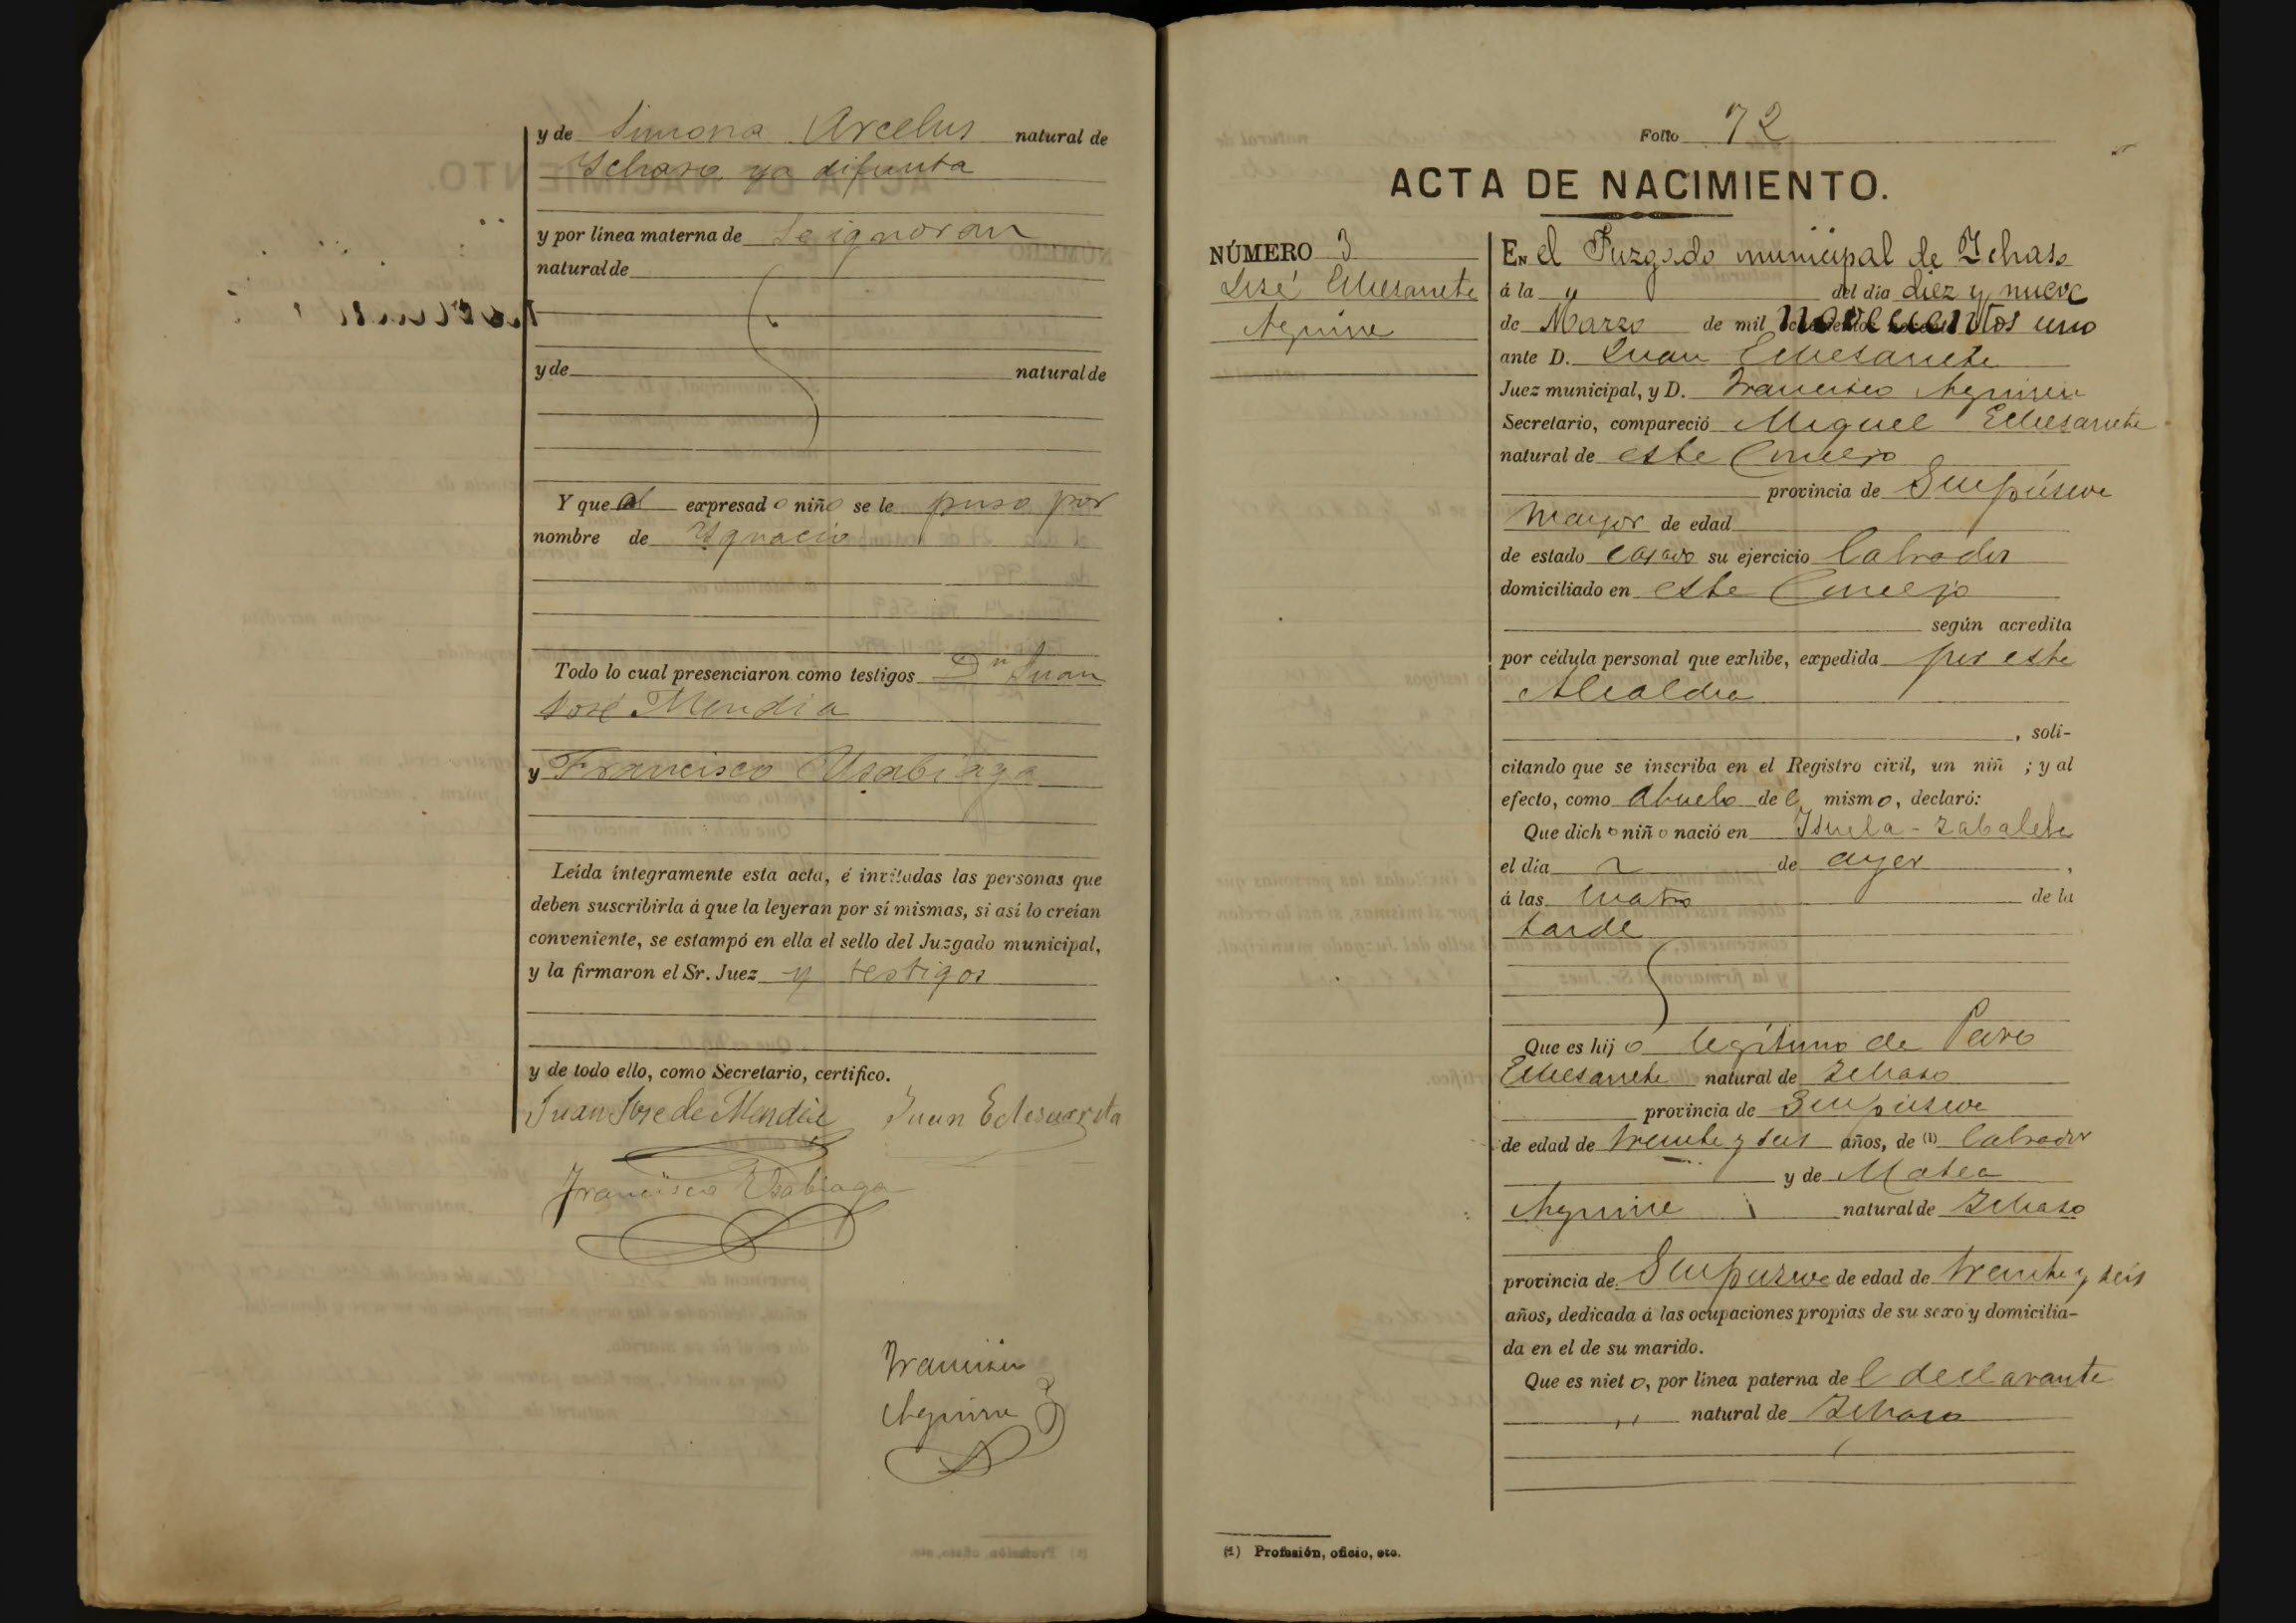 y de Simona Arcelus natural de
Ychaso ya difunta
y por línea materna de Se ignoran
natural de
y de natural de
Y que al expresado niño se le puso por
nombre de Ygnacio
Todo lo cual presenciaron como testigos Dn Juan
José Mendia
y Francisco Usabiaga
Leída íntegramente esta acta, é invitadas las personas que
deben suscribirla á que la leyeran por sí mismas, si así lo creían
conveniente, se estampó en ella el sello del Juzgado municipal,
y la firmaron el Sr. Juez y testigos
y de todo ello, como Secretario, certifico.
Juan Jose de Mendia Juan Echesuarreta
Francisco Usabiaga
Francisco
Aguirre
Folio 72
ACTA DE NACIMIENTO.
NÚMERO 3
José Echesarreta
Aguirre
En el Juzgado municipal de Ychaso
á la " del día diez y nueve
de Marzo de mil novecientos uno
ante D. Juan Echesarreta
Juez municipal, y D. Francisco Aguirre
Secretario, compareció Miguel Echesarreta
natural de este Concejo
provincia de Guipúscoa
mayor de edad
de estado casado su ejercicio labrador
domiciliado en este Concejo
según acredita
por cédula personal que exhibe, expedida por esta
Alcaldia
, soli-
citando que se inscriba en el Registro civil, un niñ ; y al
efecto, como abuelo del mismo, declaró:
Que dicho niño nació en Zabaleta
el día de ayer ,
á las cuatro de la
tarde
Que es hijo legítimo de
Echesarreta natural de Ychaso
provincia de Guipuscoa
de edad de treinta y seis años, de (1) labrador
y de Matea
Aguirre natural de Ychaso
provincia de Guipuzcoa de edad de treinta y seis
años, dedicada á las ocupaciones propias de su sexo y domicilia-
da en el de su marido.
Que es nieto, por línea paterna del declarante
,, natural de Ychaso
(1) Profesión, oficio, etc.